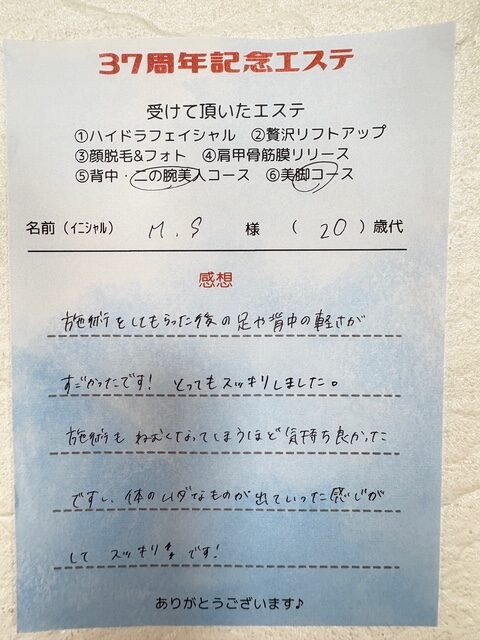 37周年記念エステ
受けて頂いたエステ
①ハイドラフェイシャル ②贅沢リフトアップ
③顔脱毛&フォト ④肩甲骨筋膜リリース
⑤背中・二の腕美人コース ⑥美脚コース
名前(イニシャル) M.S 様 (20)歳代
感想
施術をしてもらった後の足や背中の軽さが
すごかったです! とってもスッキリしました。
施術も ねむくなってしまうほど気持ち良かった
ですし、体のムダなものが出ていった感じが
して スッキリ です!
ありがとうございます♪